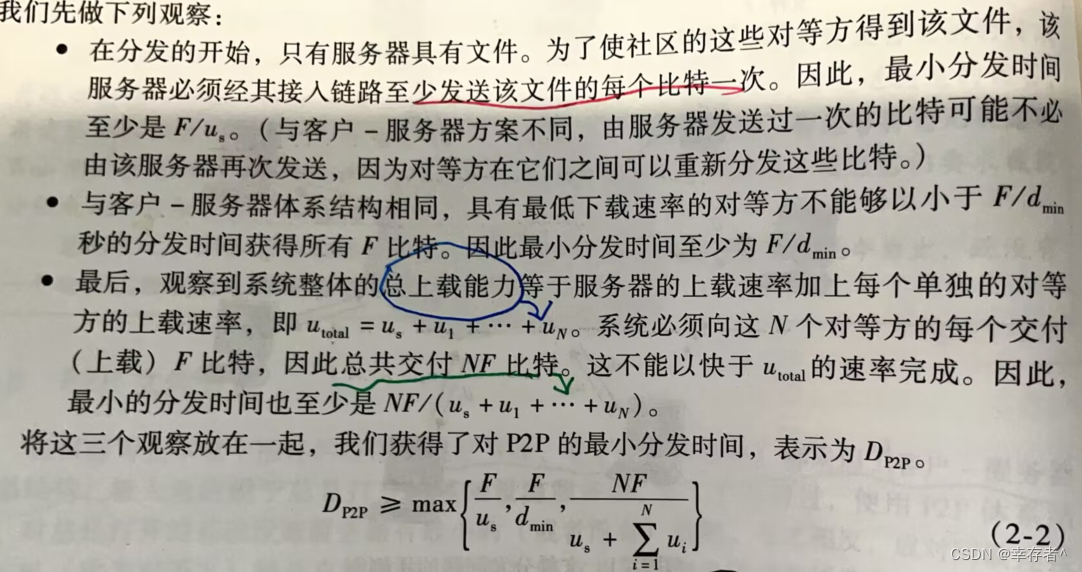 我们先做下列观察：
• 在分发的开始，只有服务器具有文件。为了使社区的这些对等方得到该文件，该
服务器必须经其接入链路至少发送该文件的每个比特一次。因此，最小分发时间
至少是 F/uₛ。（与客户－服务器方案不同，由服务器发送过一次的比特可能不必
由该服务器再次发送，因为对等方在它们之间可以重新分发这些比特。）
• 与客户－服务器体系结构相同，具有最低下载速率的对等方不能够以小于 F/d_min
秒的分发时间获得所有 F 比特。因此最小分发时间至少为 F/d_min。
• 最后，观察到系统整体的总上载能力等于服务器的上载速率加上每个单独的对等
方的上载速率，即 u_total = u_s + u_1 + ⋯ + u_N。系统必须向这 N 个对等方的每个交付
（上载）F 比特，因此总共交付 NF 比特。这不能以快于 u_total 的速率完成。因此，
最小的分发时间也至少是 NF/(u_s + u_1 + ⋯ + u_N)。
将这三个观察放在一起，我们获得了对 P2P 的最小分发时间，表示为 D_P2P。
D_P2P ≥ max{F/u_s, F/d_min, NF/(u_s + ∑_{i=1}^{N} u_i)} (2-2)
CSDN @幸存者^